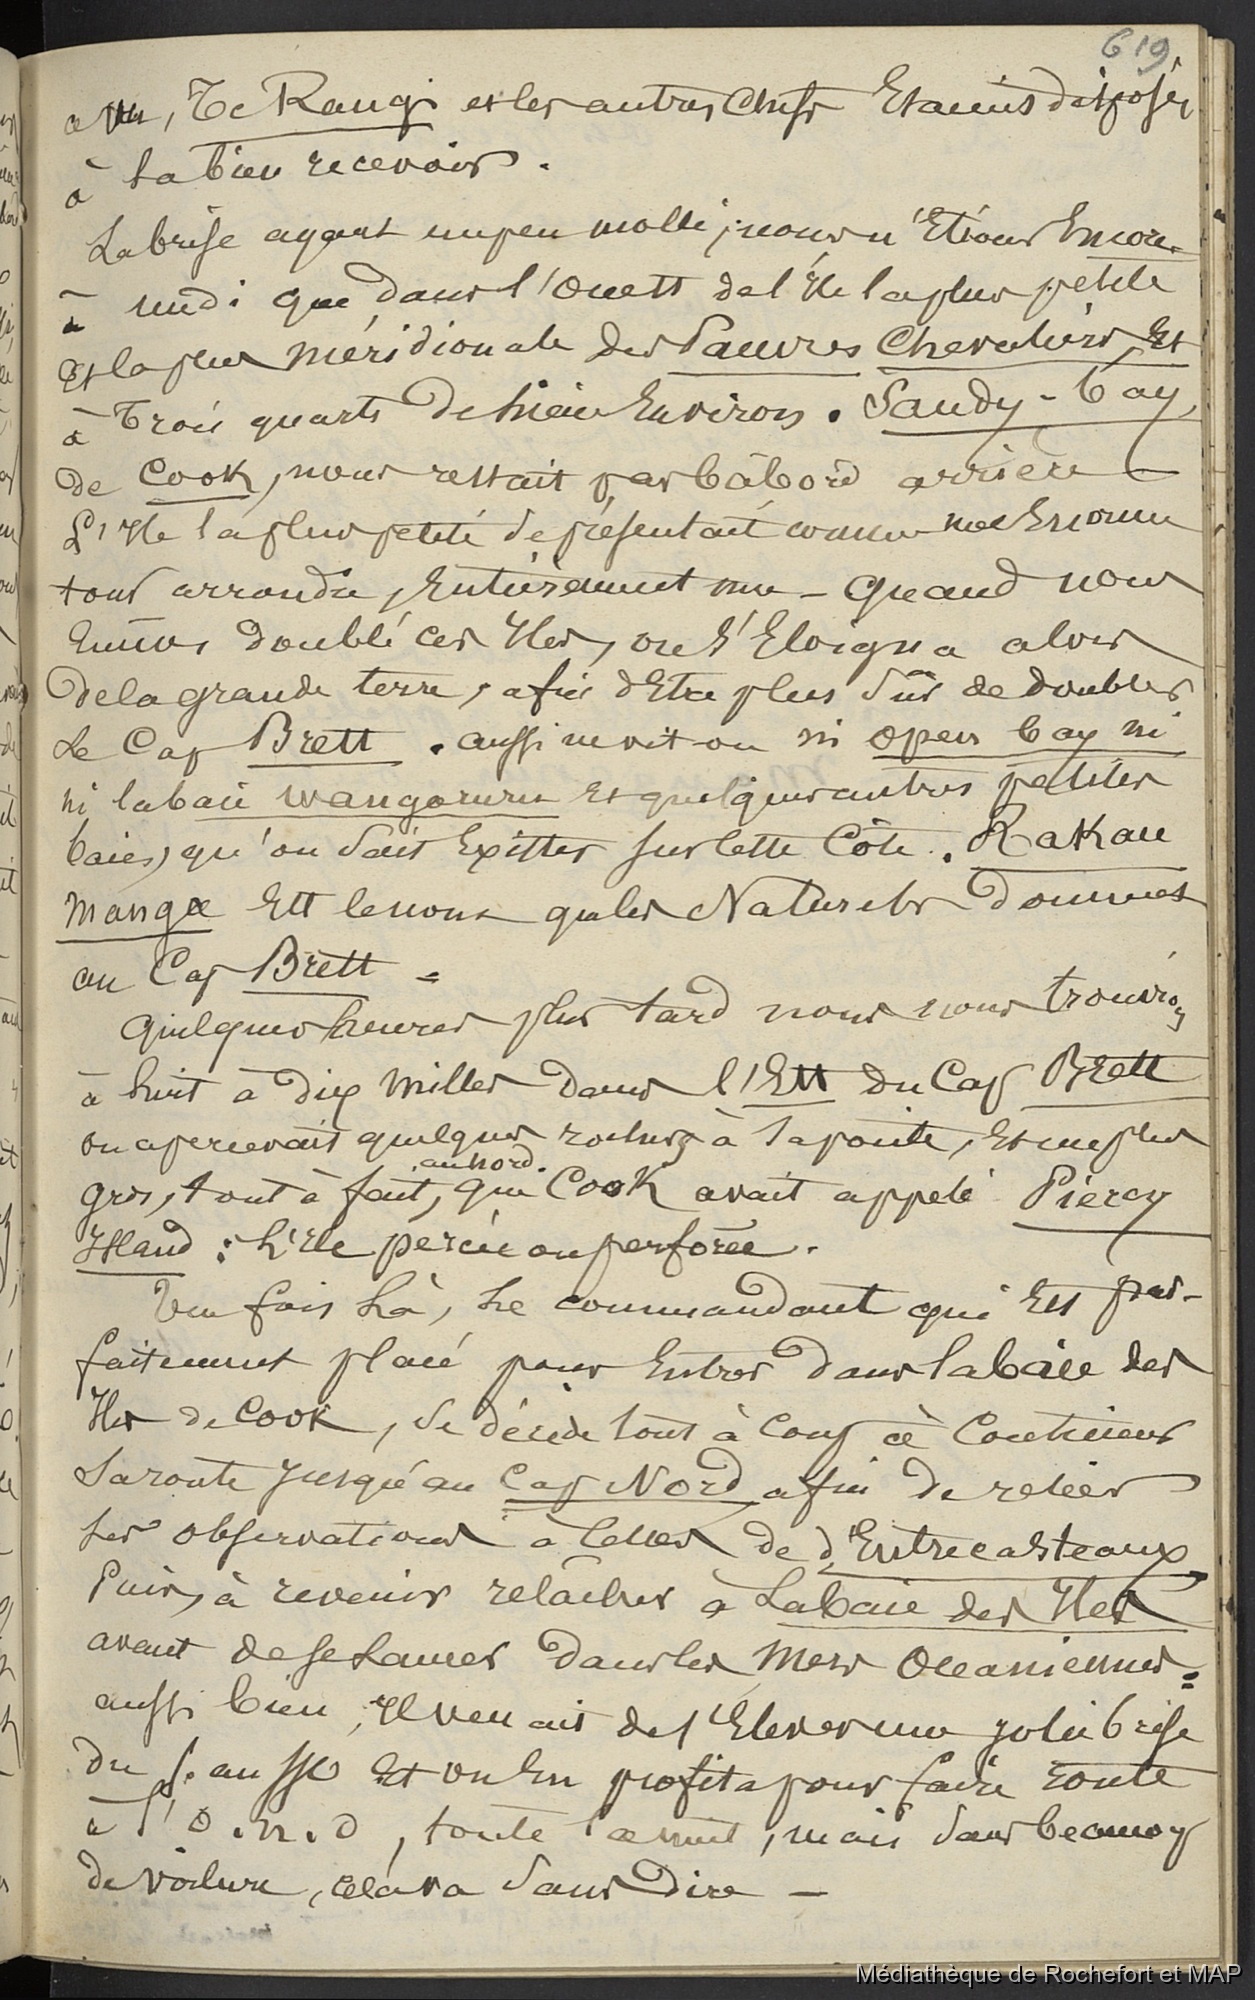 619
amis, Te Rangi et les autres chefs Etamis disposés
à la bien recevoir.
La brise ayant un peu molli, nous n'Etions Encore
à midi que dans l'ouest de l'Ile la plus petite
Et la plus méridionale des Pauvres Chevaliers, Et
à trois quarts de lieue Environ. Sandy-bay,
de Cook, nous restait par bâbord arrière —
L'Ile la plus petite se présentait comme une Enorme
tour arrondie, Entièrement nue — Quand nous
Eumes doublé ces Iles, on s'Eloigna alors
de la grande terre, afin d'Etre plus sûr de doubler
Le Cap Brett. aussi ne vit-on ni open bay ni
ni la baie Wangaruru Et quelques autres petites
baies, qu'on sait Exister sur cette Côte. Rakau
Mangæ Est le nom que les Naturels donnent
au Cap Brett =
Quelques heures plus tard nous nous trouvions
à huit à dix milles dans l'Est du Cap Brett
on apercevait quelques roches à la pointe, Et une plus
gros, tout à fait, au nord. que Cook avait appelé Piercy
Island : L'Ile percée ou perforée.
Une fois là, Le commandant qui Est par-
faitement placé pour Entrer dans la baie des
Iles de Cook, se décide tout à coup à Continuer
Sa route jusqu'au Cap Nord afin de relier
Ses observations à celles de d'Entrecasteaux
Puis, à revenir relâcher à La baie des Iles
avant de se Lancer dans les Mers Oceaniennes =
aussi bien, Il venait de s'Elever une jolie brise
du S. au SSO Et on En profita pour faire route
à l'O.N.O, toute la nuit, mais sans beaucoup
de voilure, cela va sans dire —
Médiathèque de Rochefort et MAP